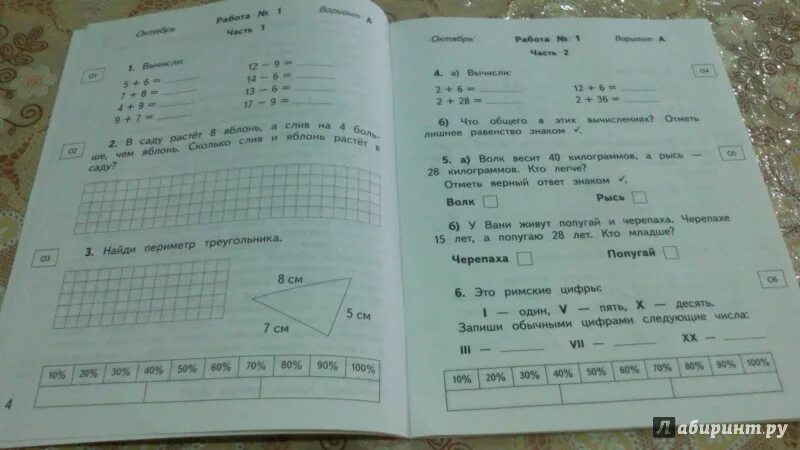 Октябрь Работа № 1 Вариант А
Часть 1
О1
1. Вычисли:
5 + 6 = 12 – 9 =
7 + 8 = 14 – 6 =
4 + 9 = 13 – 6 =
9 + 7 = 17 – 9 =
О2
2. В саду растёт 8 яблонь, а слив на 4 боль-
ше, чем яблонь. Сколько слив и яблонь растёт в
саду?
О3
3. Найди периметр треугольника.
8 см
5 см
7 см
10% 20% 30% 40% 50% 60% 70% 80% 90% 100%
4
Октябрь Работа № 1 Вариант А
Часть 2
О4
4. а) Вычисли:
2 + 6 = 12 + 6 =
2 + 28 = 2 + 36 =
б) Что общего в этих вычислениях? Отметь
лишнее равенство знаком ✓.
О5
5. а) Волк весит 40 килограммов, а рысь —
28 килограммов. Кто легче?
Отметь верный ответ знаком ✓.
Волк Рысь
б) У Вани живут попугай и черепаха. Черепахе
15 лет, а попугаю 28 лет. Кто младше?
Черепаха Попугай
О6
6. Это римские цифры:
I — один, V — пять, X — десять.
Запиши обычными цифрами следующие числа:
III — VII — XX —
10% 20% 30% 40% 50% 60% 70% 80% 90% 100%
Лабиринт.ру